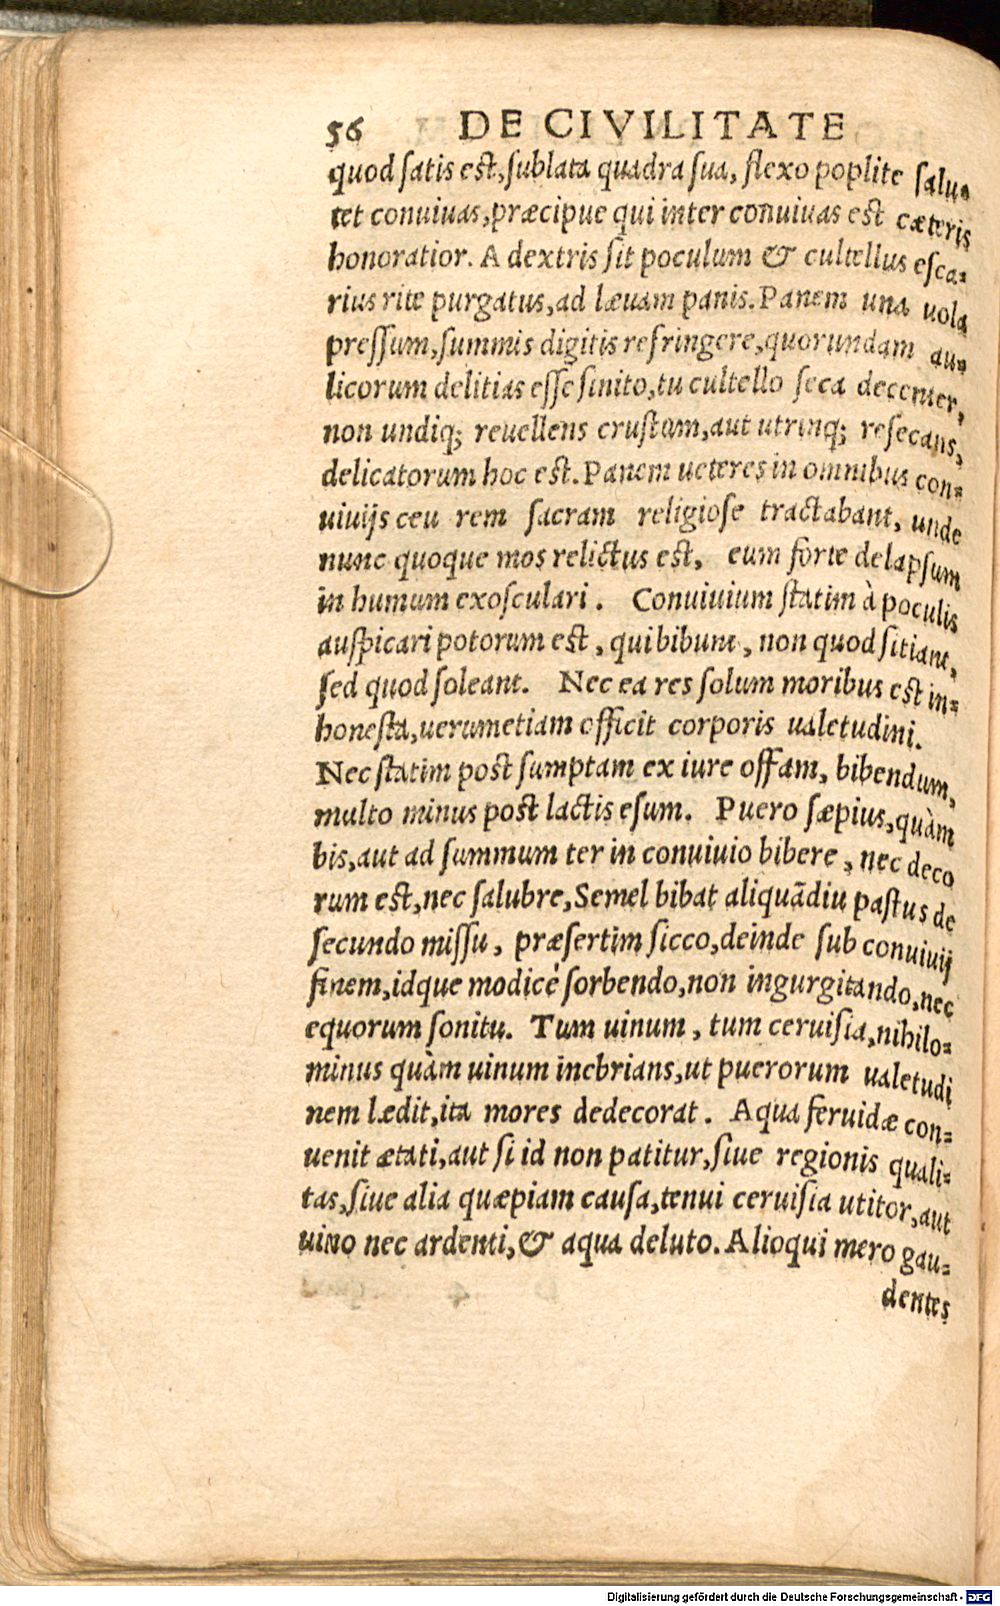 56 DE CIVILITATE
quod satis est, sublata quadra sua, flexo poplite salu-
tet conuiuas, præcipue qui inter conuiuas est cæteris
honoratior. A dextris sit poculum & cultellus esca-
rius rite purgatus, ad læuam panis. Panem una uola
pressum, summis digitis refringere, quorundam au-
licorum delitias esse sinito, tu cultello seca decenter,
non undiq; reuellens crustam, aut utrinq; resecans,
delicatorum hoc est. Panem ueteres in omnibus con-
uiuijs ceu rem sacram religiose tractabant, unde
nunc quoque mos relictus est, eum forte delapsum
in humum exosculari. Conuiuium statim à poculis
auspicari potorum est, qui bibunt, non quod sitiant,
sed quod soleant. Nec ea res solum moribus est in-
honesta, uerumetiam officit corporis ualetudini.
Nec statim post sumptam ex iure offam, bibendum,
multo minus post lactis esum. Puero sæpius, quàm
bis, aut ad summum ter in conuiuio bibere, nec deco
rum est, nec salubre, Semel bibat aliquādiu pastus de
secundo missu, præsertim sicco, deinde sub conuiuij
finem, idque modicè sorbendo, non ingurgitando, nec
equorum sonitu. Tum uinum, tum ceruisia, nihilo-
minus quàm uinum inebrians, ut puerorum ualetudi
nem lædit, ita mores dedecorat. Aqua feruidæ con-
uenit ætati, aut si id non patitur, siue regionis quali-
tas, siue alia quæpiam causa, tenui ceruisia utitor, aut
uino nec ardenti, & aqua deluto. Alioqui mero gau-
dentes
Digitalisierung gefördert durch die Deutsche Forschungsgemeinschaft - DFG